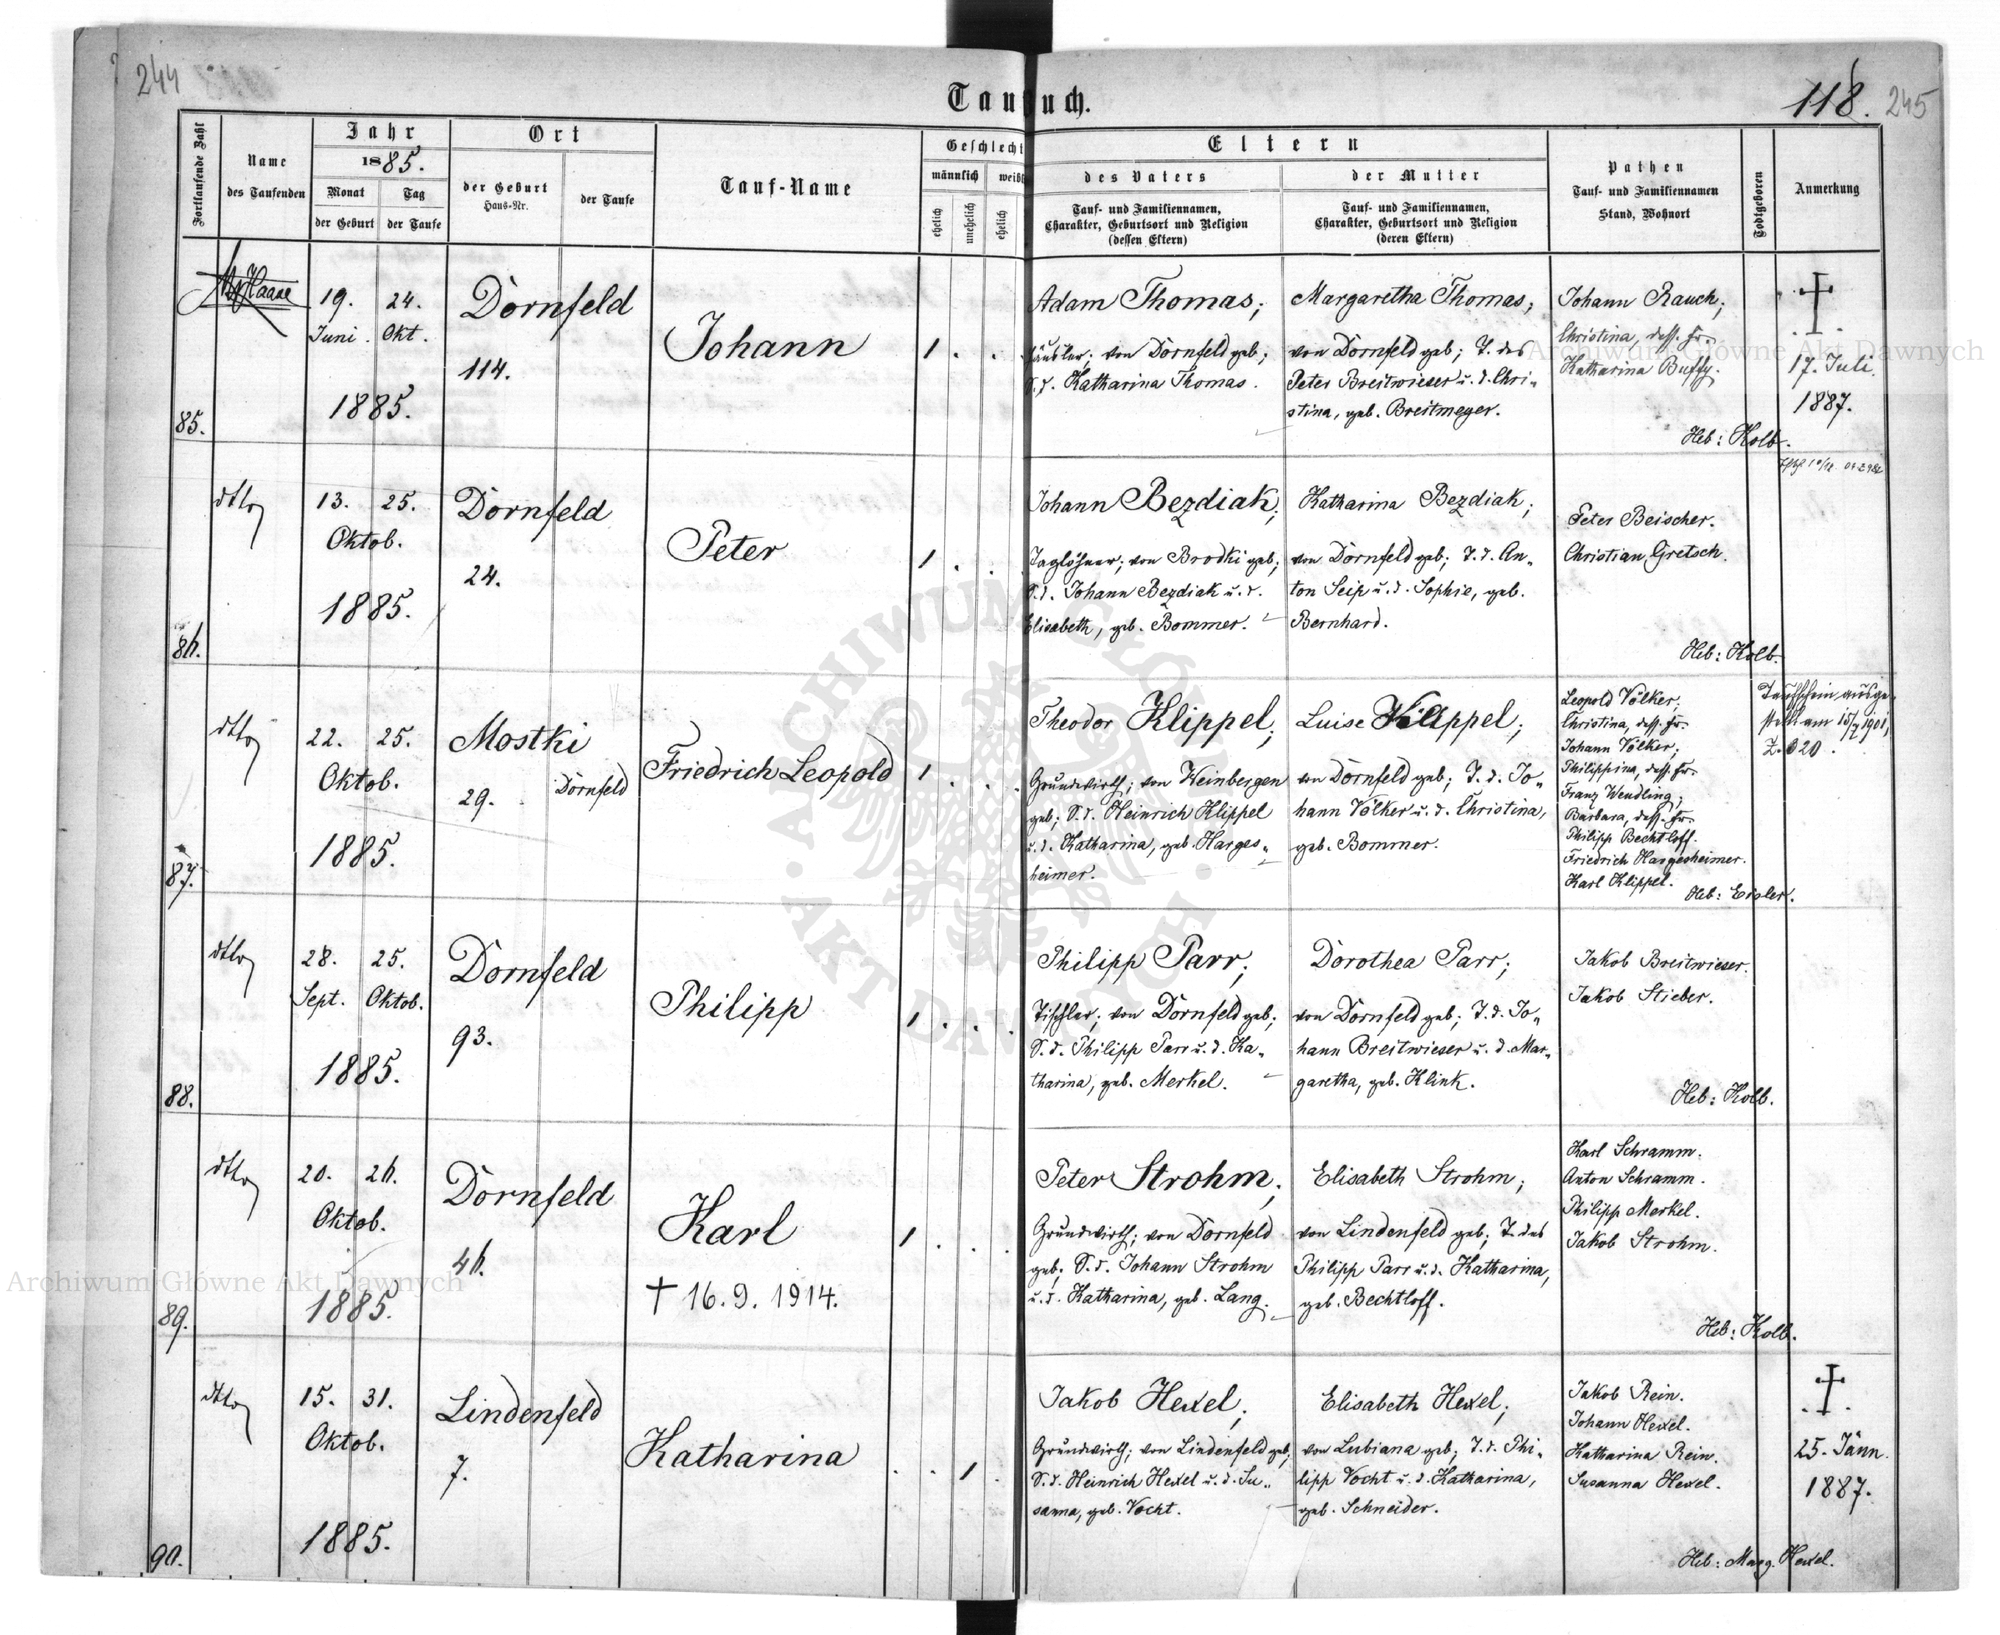 244
Taufbuch.
118. 245
Fortlaufende Zahl
Name
des Taufenden
Jahr
1885.
Monat
der Geburt
Tag
der Taufe
Ort
der Geburt
Haus-Nr.
der Taufe
Tauf-Name
Geschlecht
männlich
weibl
ehelich
unehelich
ehelich
Eltern
des Vaters
Tauf- und Familiennamen,
Charakter, Geburtsort und Religion
(dessen Eltern)
der Mutter
Tauf- und Familiennamen,
Charakter, Geburtsort und Religion
(deren Eltern)
Pathen
Tauf- und Familiennamen
Stand, Wohnort
Todtgeboren
Anmerkung
85.
Haase
19. 24.
Juni. Okt.
1885.
Dornfeld
114.
Johann
1 . .
Adam Thomas;
Häusler; von Dornfeld geb;
S. d. Katharina Thomas.
Margaretha Thomas;
von Dornfeld geb; T. des
Peter Breitwieser u. d. Chri-
stina, geb. Breitmeyer.
Johann Rauch;
Christina, dess. Fr.
Katharina Buffy.
Heb: Kolb.
†
17. Juli
1887.
86.
dtto
13. 25.
Oktob.
1885.
Dornfeld
24.
Peter
1 . .
Johann Bezdiak;
Taglöhner; von Brodki geb;
S. d. Johann Bezdiak u. d.
Elisabeth, geb. Bommer.
Katharina Bezdiak;
von Dornfeld geb; T. d. An-
ton Seip u. d. Sophie, geb.
Bernhard.
Peter Beischer.
Christian Gretsch.
Heb: Kolb.
87.
dtto
22. 25.
Oktob.
1885.
Mostki
29. Dornfeld
Friedrich Leopold
1 . . .
Theodor Klippel;
Grundwirth; von Weinbergen
geb; S. d. Heinrich Klippel
u. d. Katharina, geb. Harges-
heimer.
Luise Klippel;
von Dornfeld geb; T. d. Jo-
hann Völker u. d. Christina,
geb. Bommer.
Leopold Völker;
Christina, dess. Fr.
Johann Völker;
Philippina, dess. Fr.
Franz Wendling;
Barbara, dess. Fr.
Philipp Bechtloff.
Friedrich Hargesheimer.
Karl Klippel.
Heb: Eisler.
Taufschein ausge-
stellt am 15/7 1901,
Z. 620.
88.
dtto
28. 25.
Sept. Oktob.
1885.
Dornfeld
93.
Philipp
1 . . .
Philipp Parr;
Tischler; von Dornfeld geb;
S. d. Philipp Parr u. d. Ka-
tharina, geb. Merkel.
Dorothea Parr;
von Dornfeld geb; T. d. Jo-
hann Breitwieser u. d. Mar-
garetha, geb. Klink.
Jakob Breitwieser.
Jakob Stieber.
Heb: Kolb.
89.
dtto
20. 26.
Oktob.
1885.
Dornfeld
46.
Karl
† 16. 9. 1914.
1 . . .
Peter Strohm;
Grundwirth; von Dornfeld
geb; S. d. Johann Strohm
u. d. Katharina, geb. Lang.
Elisabeth Strohm;
von Lindenfeld geb; T. des
Philipp Parr u. d. Katharina,
geb. Bechtloff.
Karl Schramm.
Anton Schramm.
Philipp Merkel.
Jakob Strohm.
Heb: Kolb.
90.
dtto
15. 31.
Oktob.
1885.
Lindenfeld
7.
Katharina
. . 1 .
Jakob Hexel;
Grundwirth; von Lindenfeld geb;
S. d. Heinrich Hexel u. d. Su-
sanna, geb. Vocht.
Elisabeth Hexel;
von Lubiana geb; T. d. Phi-
lipp Vocht u. d. Katharina,
geb. Schneider.
Jakob Rein.
Johann Hexel.
Katharina Rein.
Susanna Hexel.
Heb: Marg. Hexel.
†
25. Jänn.
1887.
Archiwum Główne Akt Dawnych
Archiwum Główne Akt Dawnych
ARCHIWUM GŁÓWNE
AKT DAWNYCH